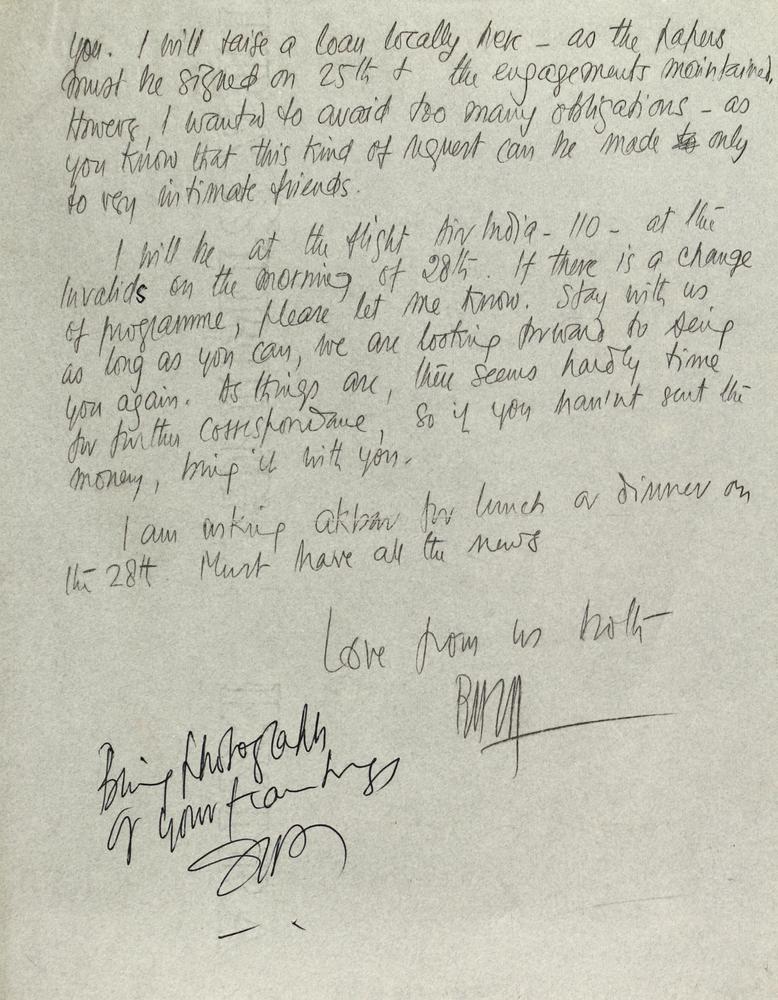 you. I will raise a loan locally here – as the papers
must be signed on 25th & the engagements maintained.
However, I wanted to avoid too many obligations – as
you know that this kind of request can be made only
to very intimate friends.
I will be, at the flight Air India – 110 – at the
Invalids on the morning of 28th. If there is a change
of programme, please let me know. Stay with us
as long as you can, we are looking forward to seing
you again. As things are, there seems hardly time
for further correspondance, so if you havn't sent the
money, bring it with you.
I am asking akbar for lunch or dinner on
the 28th. Must have all the news
Love from us both
Bring photograph
of your paintings